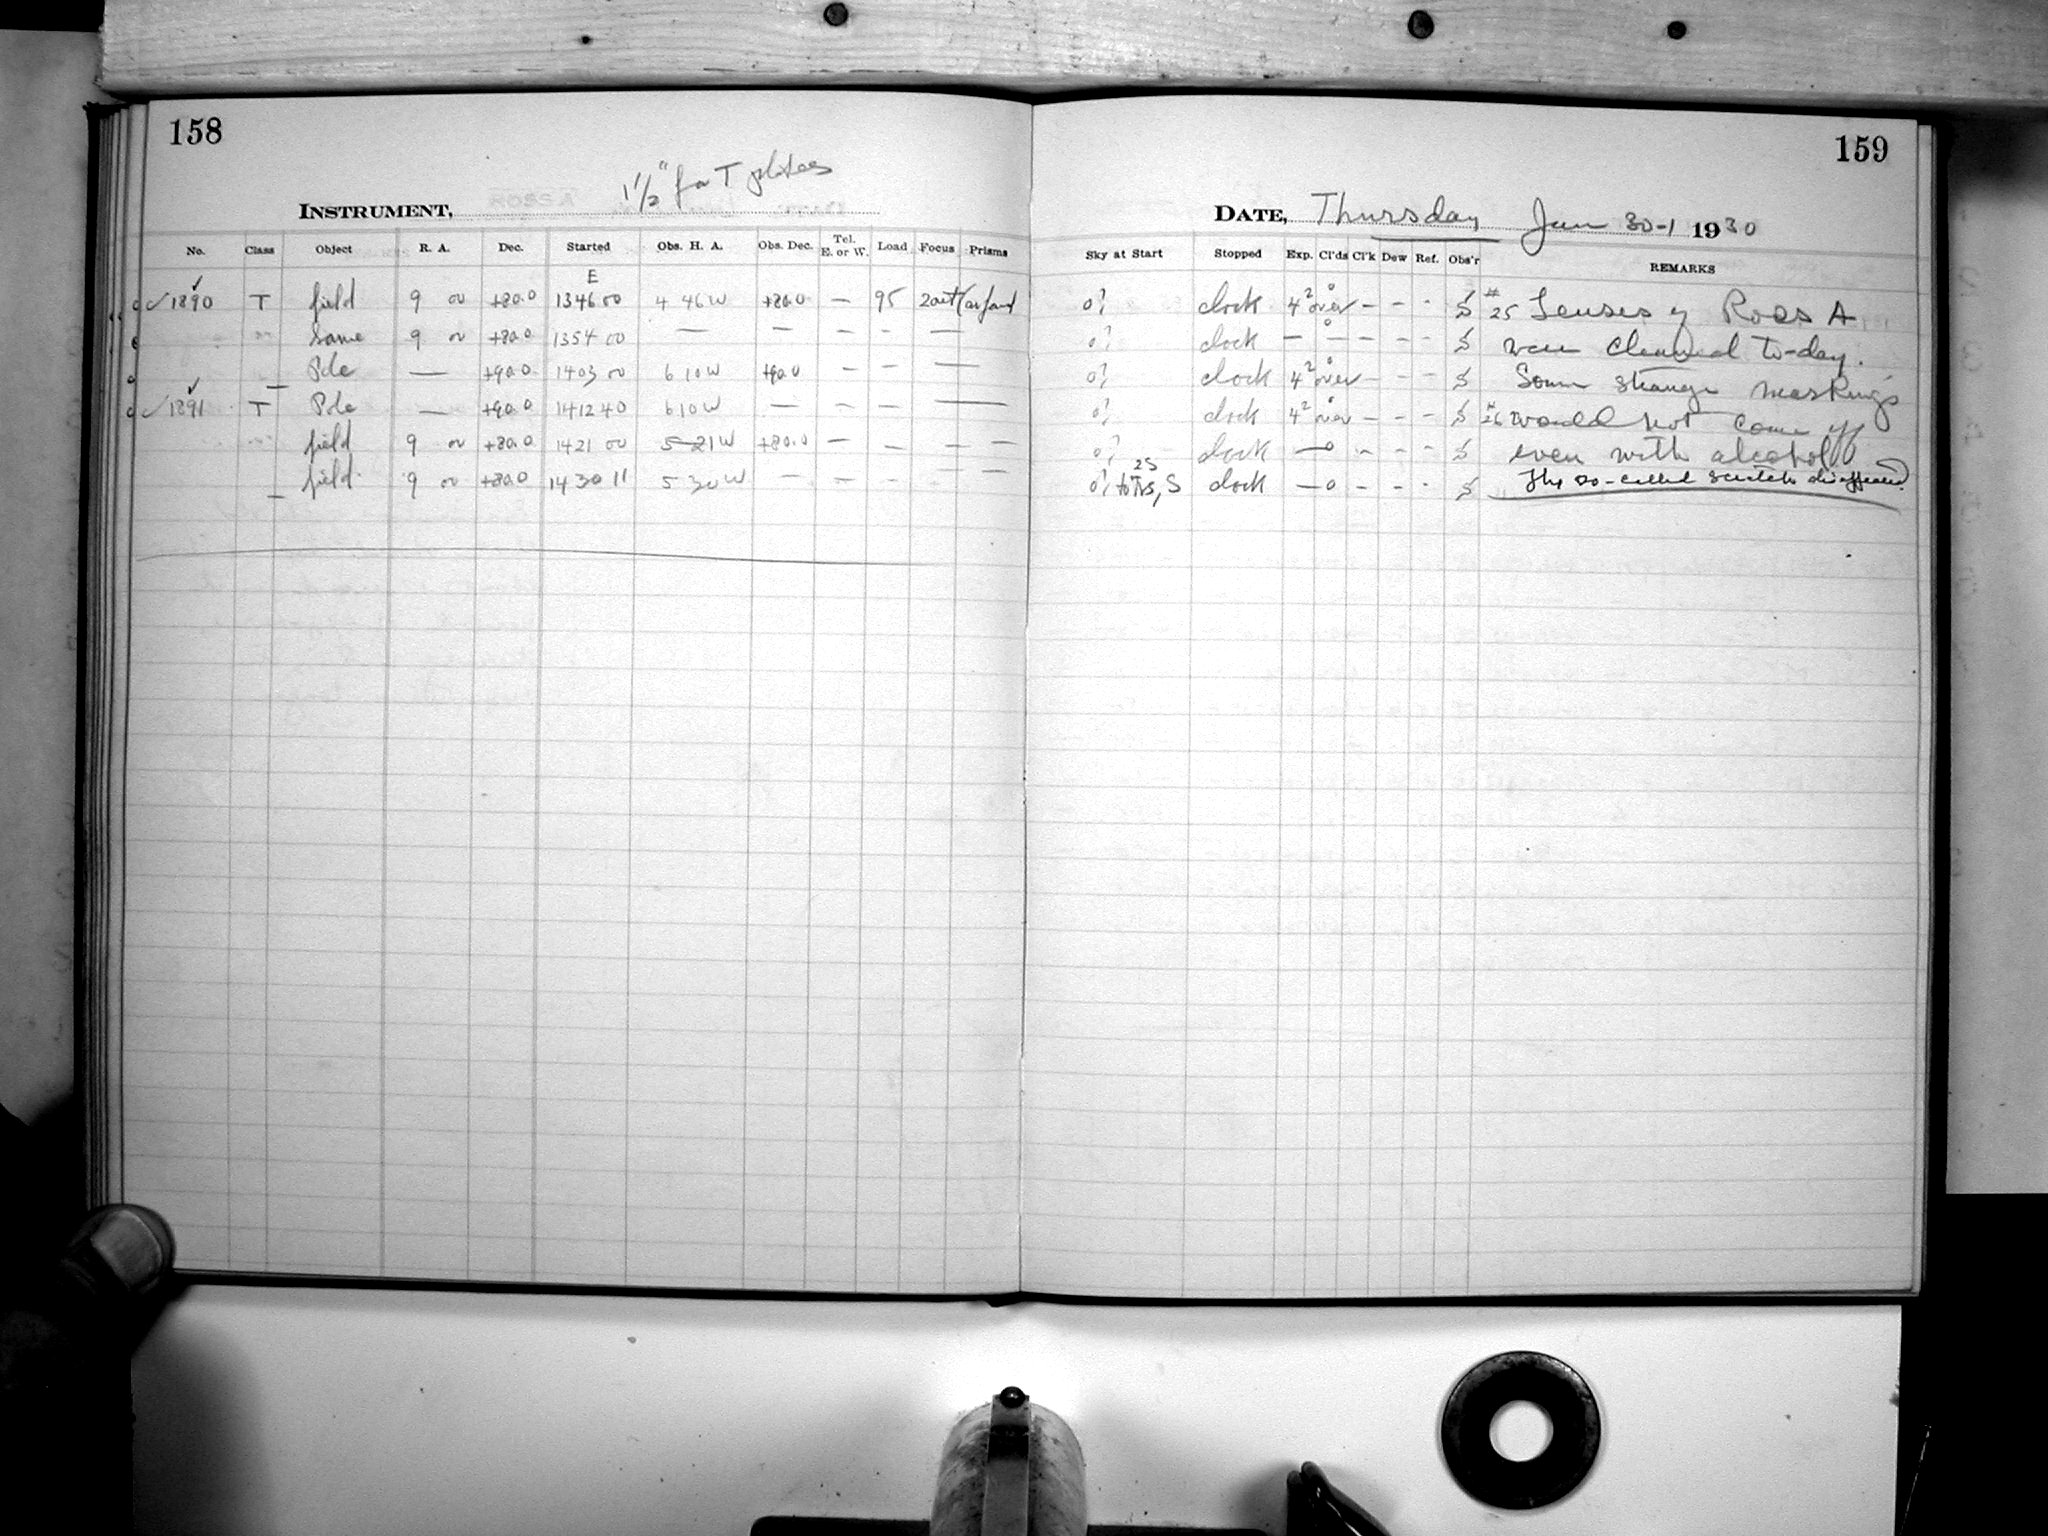 158
159
1½" for T plates
INSTRUMENT,
DATE, Thursday Jan 30-1 1930
No. Class Object R. A. Dec. Started Obs. H. A. Obs. Dec. Tel. E. or W. Load Focus Prisms Sky at Start Stopped Exp. Cl'ds Cl'k Dew Ref. Obs'r REMARKS
E
✓ 1890 T field 9 00 +80.0 1346 00 4 46 W +80.0 — 95 0? clock 4² over 0 — — - S #25 Lenses of Ross A
Same 9 00 +80.0 1354 00 — — — — — 0? clock — 0 — — - S were cleaned to-day.
Pole — +90.0 1403 00 6 10 W +90.0 — — — 0? clock 4² over 0 — — - S Some strange markings
✓ 1891 T Pole — +90.0 1412 40 6 10 W — — — — 0? clock 4² over 0 — — - S #26 would not come off
field 9 00 +80.0 1421 00 5 21 W +80.0 — — — — 0? clock — 0 - — - S even with alcohol
field 9 00 +80.0 1430 11 5 30 W — — - — — 0? to 25 S clock — 0 - - - S The so-called scratch disappeared.